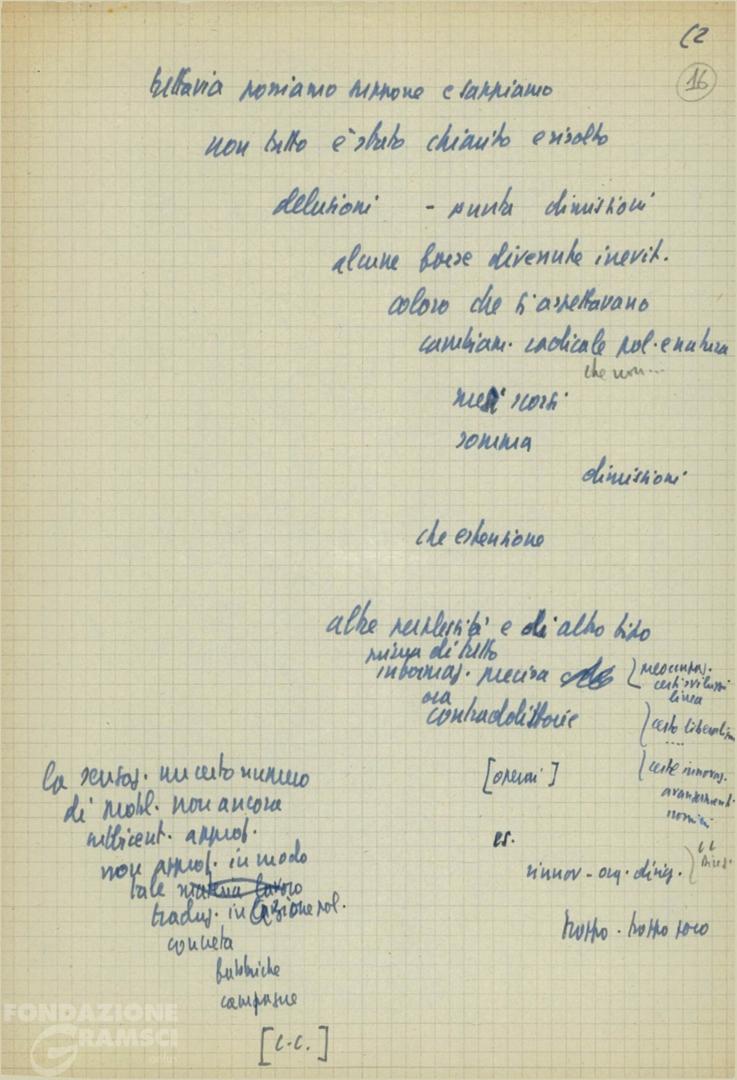 C2
16
tuttavia possiamo supporre e sappiamo
non tutto è stato chiarito e risolto
delusioni - punta dimissioni
alcune forse divenute inevit.
coloro che si aspettavano
cambiam. radicale pol. e natura
che non...
mesi scorsi
somma
dimissioni
che estensione
altre perplessità e di altro tipo
prima di tutto
informaz. precisa
ora
contraddittorie
preoccupaz.
certi sviluppi
linea
certo liberalism
....
certe innovaz.
avanzament.
uomini
[operai]
la sensaz. un certo numero
di probl. non ancora
sufficient. approf.
non approf. in modo
tale
traduz. in azione pol.
concreta
fabbriche
campagne
es.
rinnov - org. dirig.
troppo - troppo poco
[C.C.]
FONDAZIONE
GRAMSCI
onlus